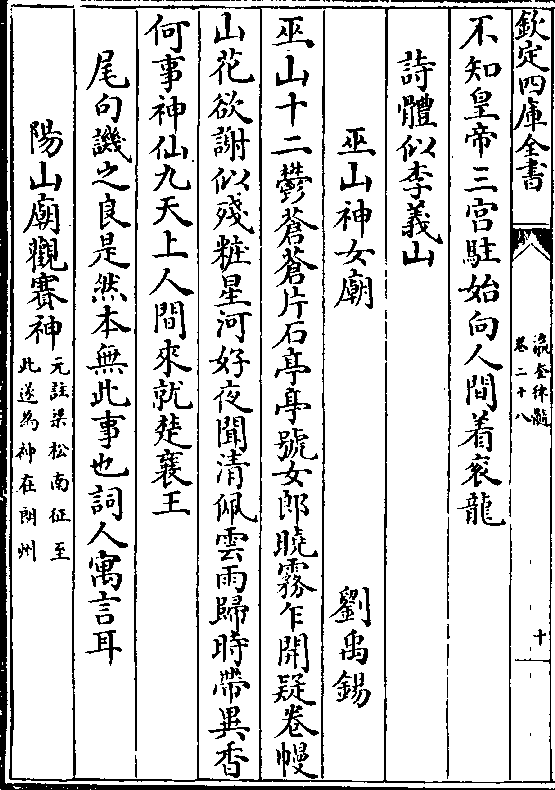 欽定四庫全書
瀛奎律髓
卷二十八
十
不知皇帝三宮駐始向人間着衮龍
詩體似李義山
巫山神女廟 劉禹錫
巫山十二鬱蒼蒼片石亭亭號女郎曉霧乍開疑卷幔
山花欲謝似殘粧星河好夜聞清佩雲雨歸時帶異香
何事神仙九天上人間來就楚襄王
尾句譏之良是然本無此事也詞人寓言耳
陽山廟觀賽神
元註梁松南征至
此遂為神在朗州